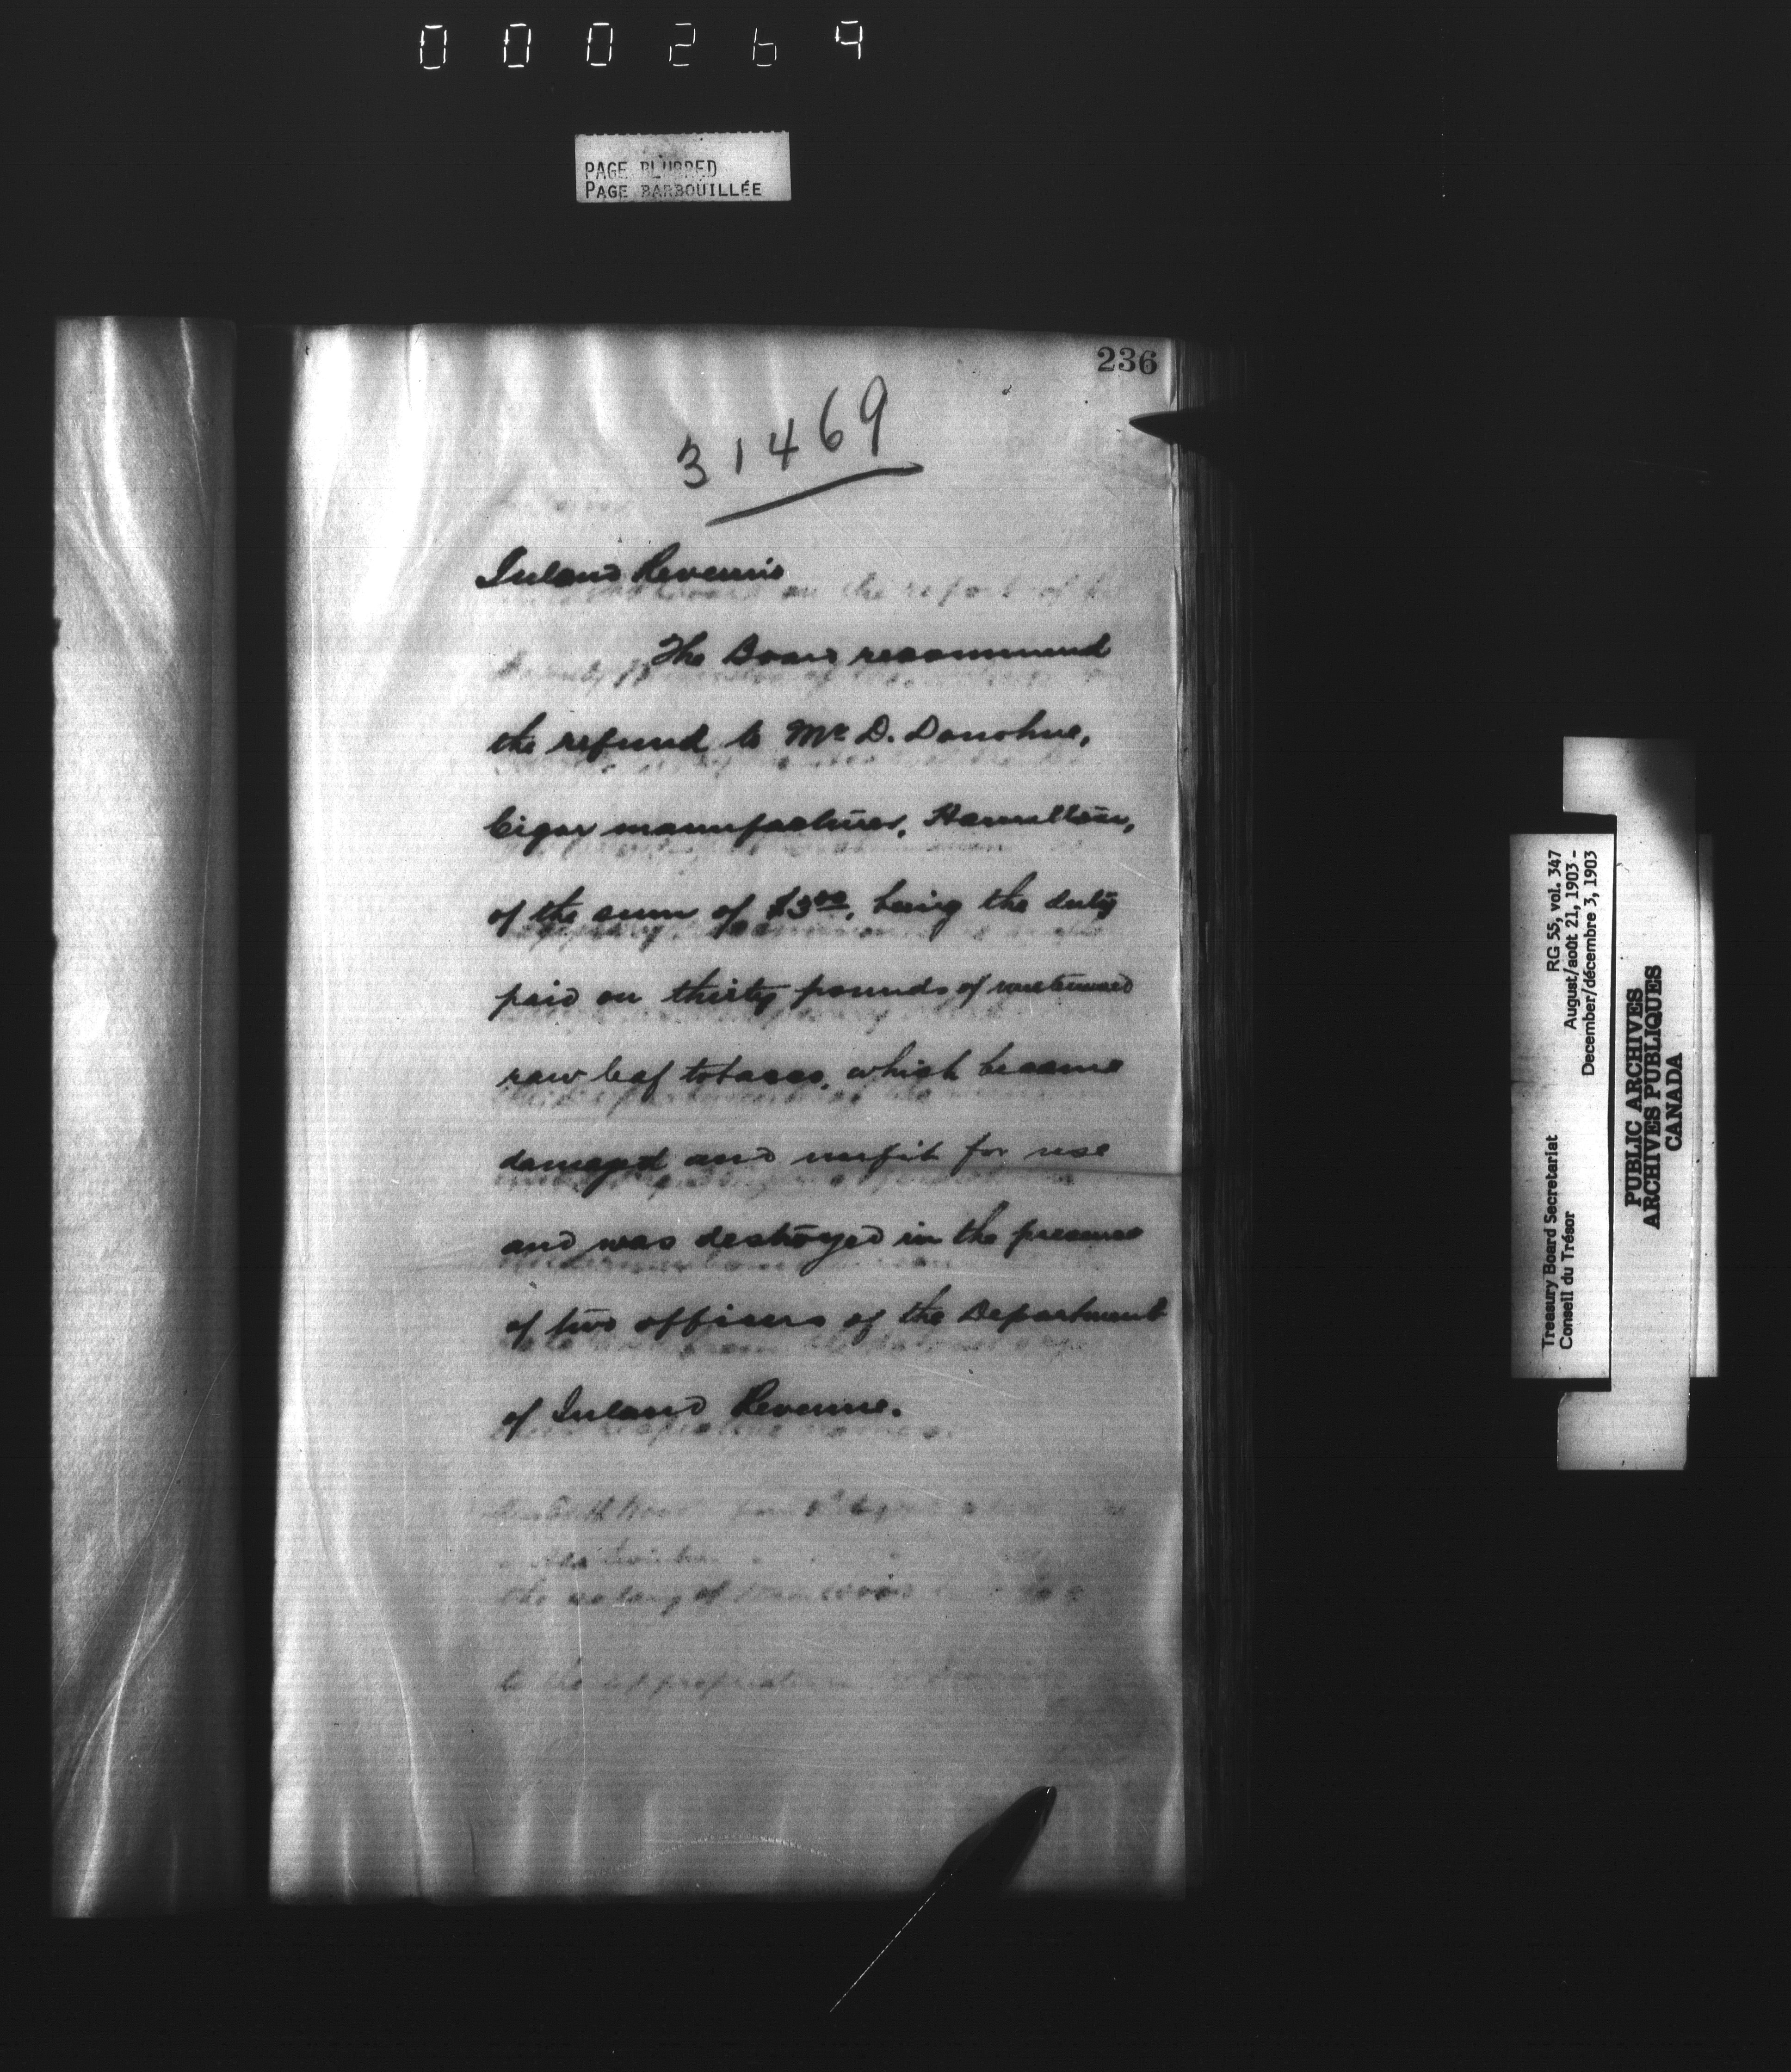 000269
PAGE BLURRED
PAGE BARBOUILLÉE
236
31469
Inland Revenue
The Board recommend
the refund to Mr. D. Donohue,
Cigar manufacturer, Hamilton,
of the sum of $3.00, being the duty
paid on thirty pounds of unstemmed
raw leaf tobacco, which became
damaged and unfit for use
and was destroyed in the presence
of two officers of the Department
of Inland Revenue.
Treasury Board Secretariat RG 55, vol. 347
Conseil du Trésor August/août 21, 1903 -
December/décembre 3, 1903
PUBLIC ARCHIVES
ARCHIVES PUBLIQUES
CANADA